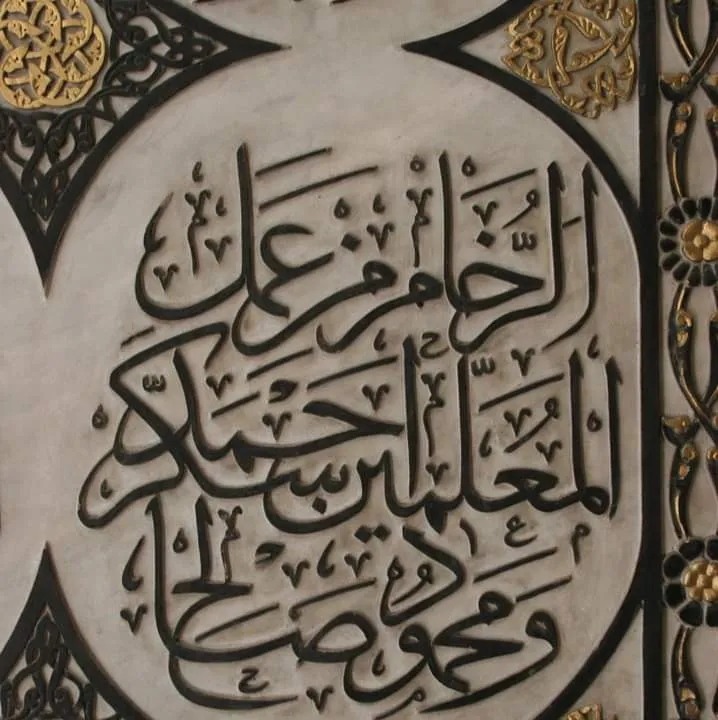 الرخام من عمل
المعلمين احمد سكر
ومحمود صالح